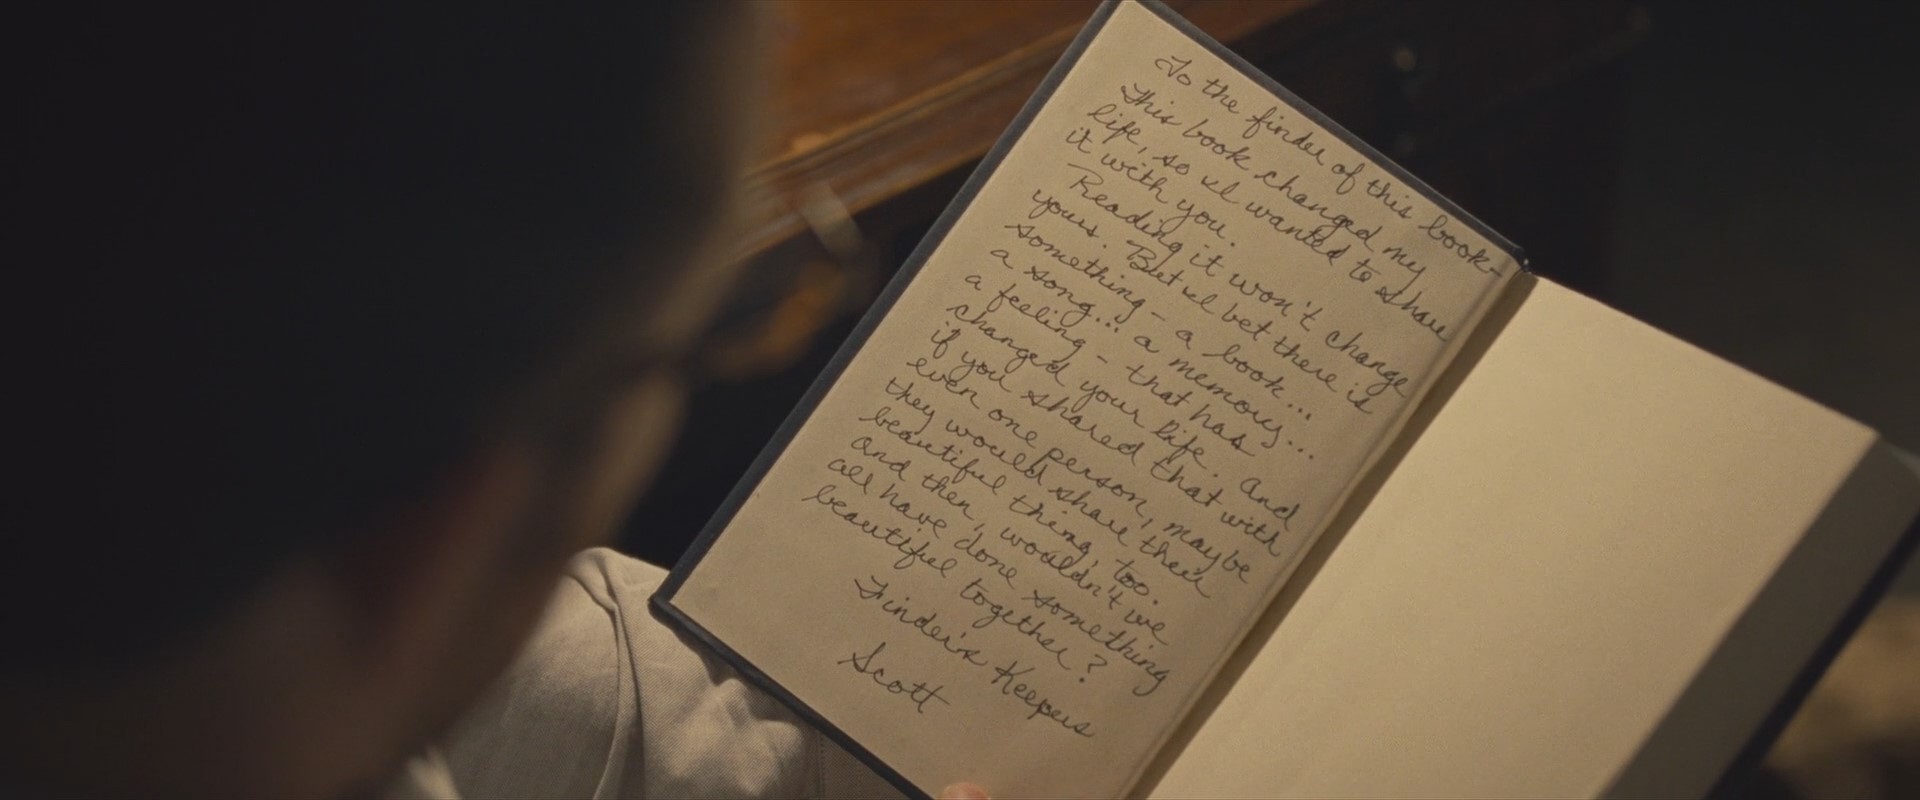 To the finder of this book-
This book changed my
life, so I wanted to share
it with you.
Reading it won't change
yours. But I bet there is
something - a book...
a song... a memory...
a feeling - that has
changed your life. And
if you shared that with
even one person, maybe
they would share their
beautiful thing, too.
And then, wouldn't we
all have done something
beautiful together?
Finder's Keepers
Scott